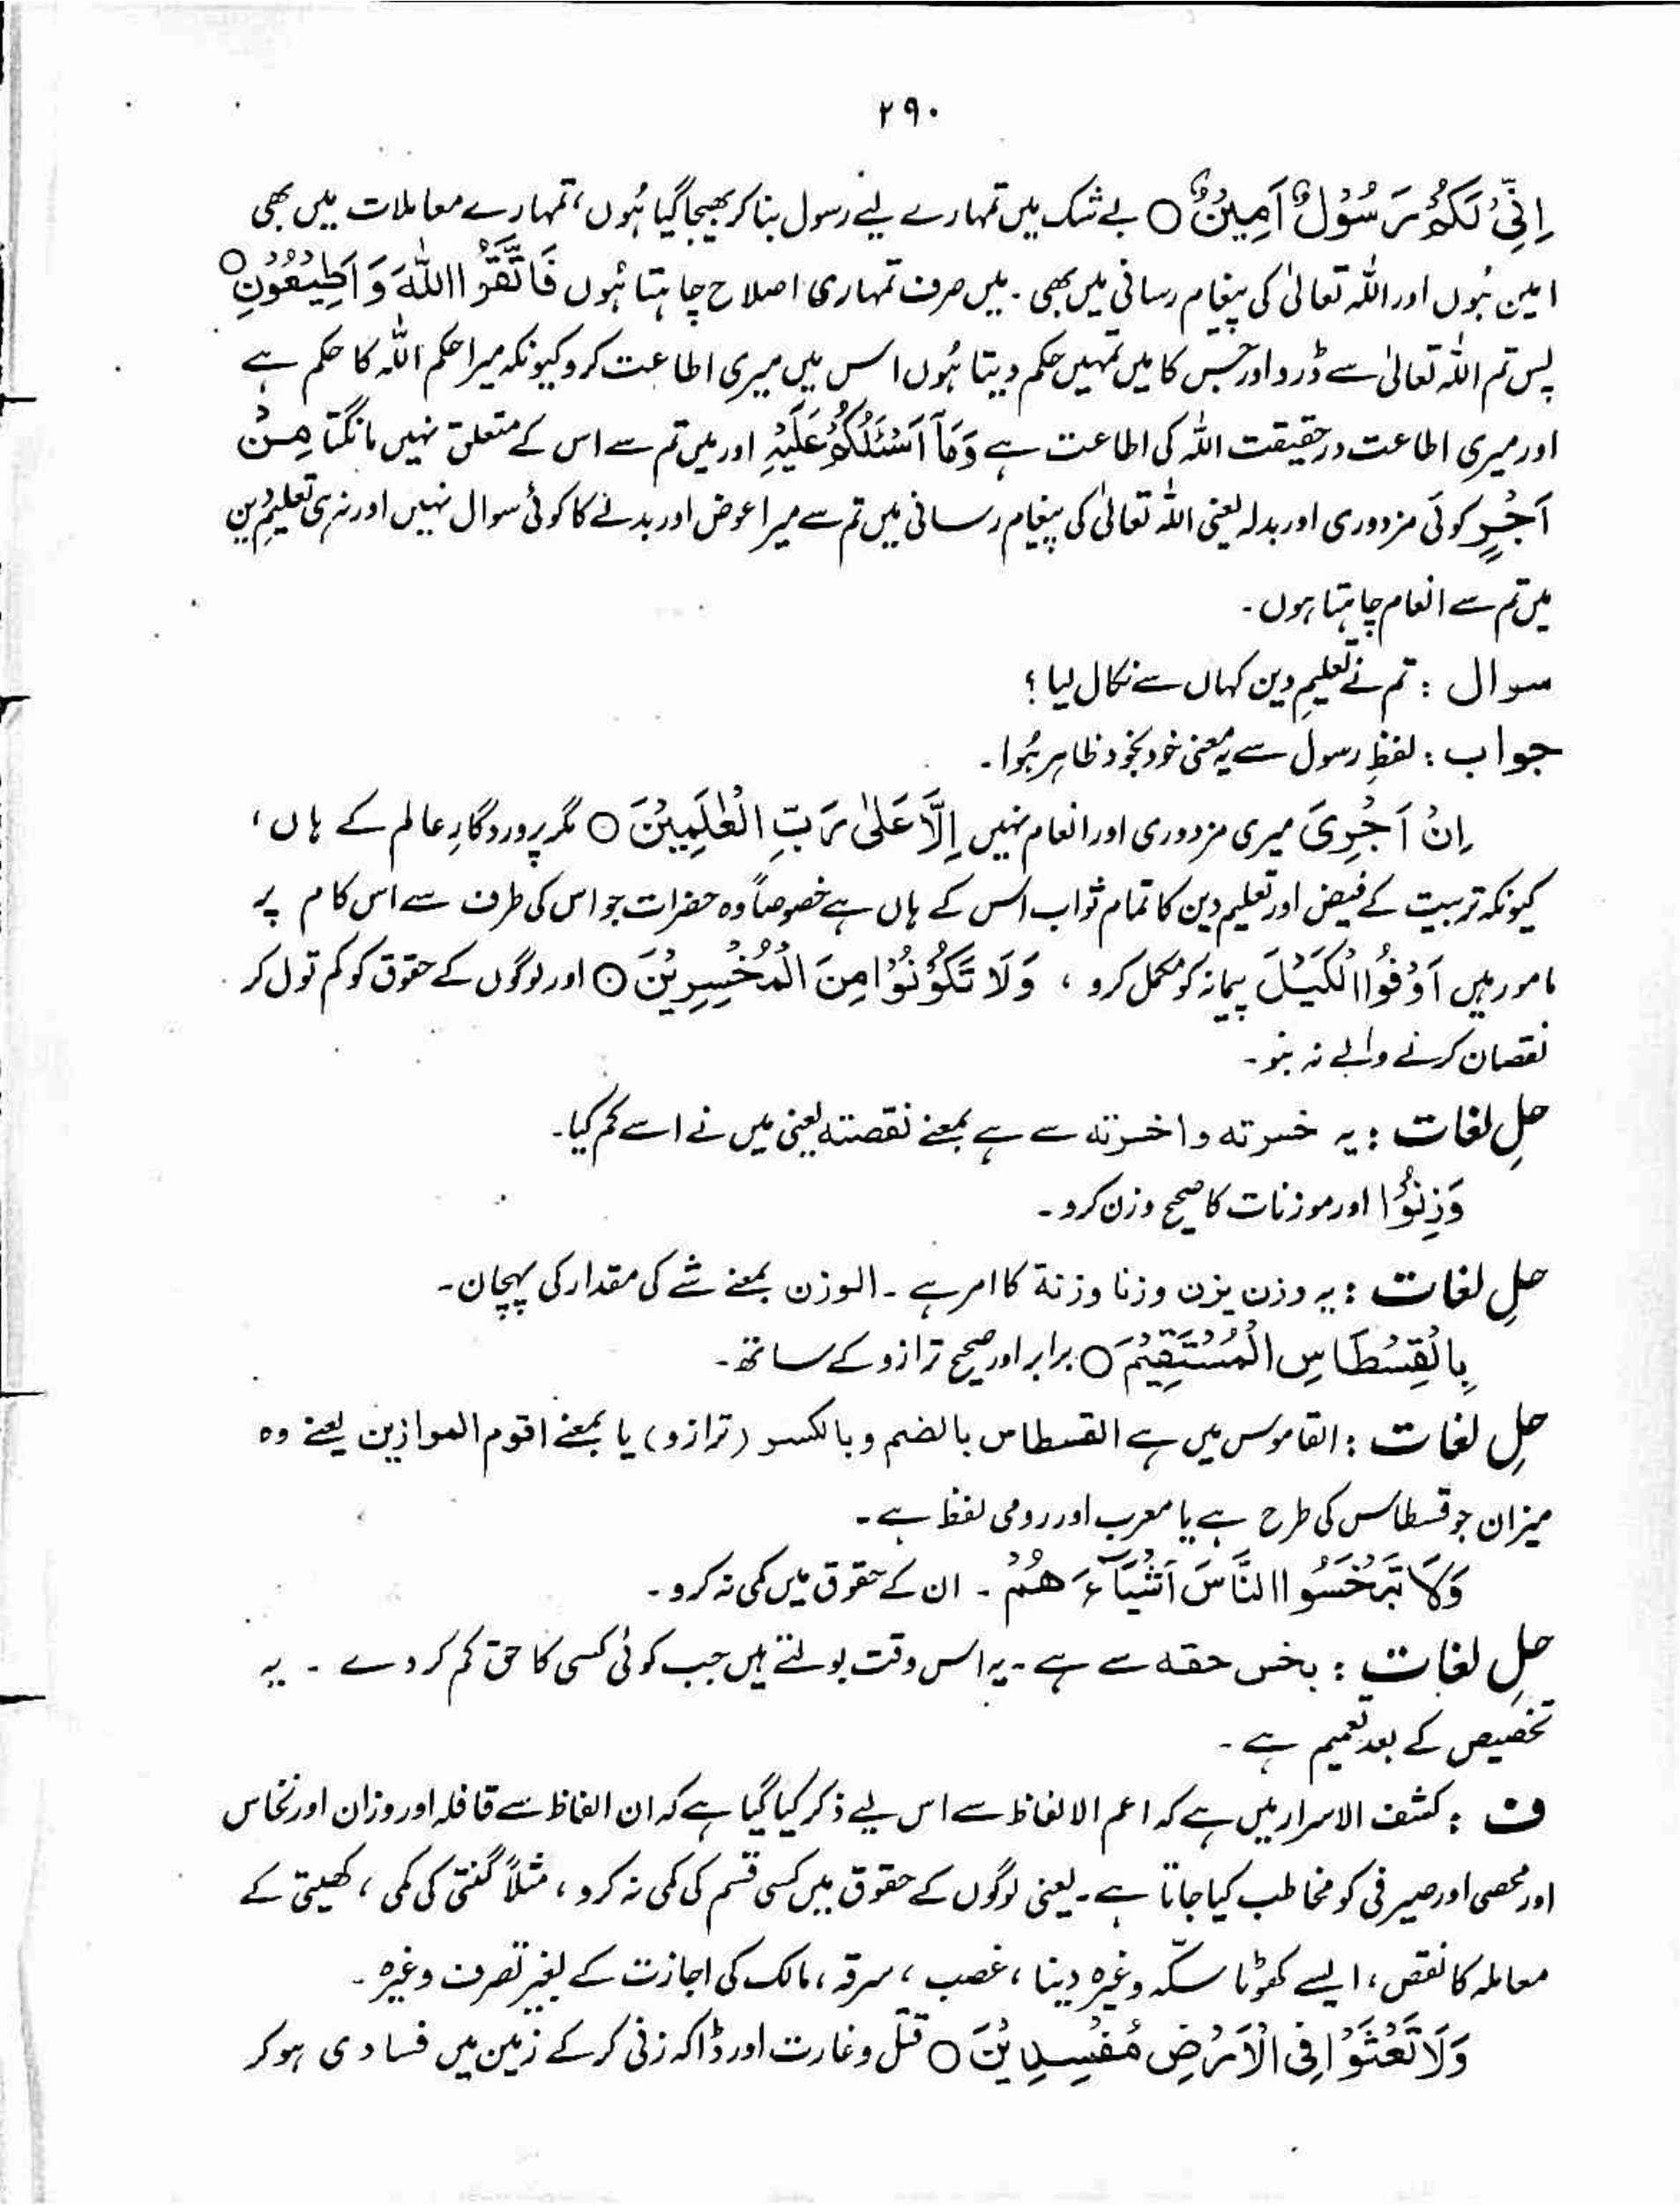 ۲۹۰
اِنِّیْ لَکُمْ رَسُوْلٌ اَمِیْنٌ ○ بے شک میں تمہارے لیے رسول بنا کر بھیجا گیا ہُوں، تمہارے معاملات میں بھی
امین ہُوں اور اللہ تعالیٰ کی پیغام رسانی میں بھی۔ میں صرف تمہاری اصلاح چاہتا ہُوں فَاتَّقُوا اللّٰہَ وَ اَطِیْعُوْنِ ○
پس تم اللہ تعالیٰ سے ڈرو اور جس کا میں تمہیں حکم دیتا ہُوں اس میں میری اطاعت کرو کیونکہ میرا حکم اللہ کا حکم ہے
اور میری اطاعت درحقیقت اللہ کی اطاعت ہے وَمَآ اَسْئَلُکُمْ عَلَیْہِ اور میں تم سے اس کے متعلق نہیں مانگتا مِنْ
اَجْرٍ کوئی مزدوری اور بدلہ یعنی اللہ تعالیٰ کی پیغام رسانی میں تم سے میرا عوض اور بدلے کا کوئی سوال نہیں اور نہ ہی تعلیمِ دین
میں تم سے انعام چاہتا ہوں۔
سوال : تم نے تعلیمِ دین کہاں سے نکال لیا ؟
جواب : لفظِ رسول سے یہ معنی خود بخود ظاہر ہُوا۔
اِنْ اَجْرِیَ میری مزدوری اور انعام نہیں اِلَّا عَلٰی رَبِّ الْعٰلَمِیْنَ ○ مگر پروردگارِ عالم کے ہاں،
کیونکہ تربیت کے فیض اور تعلیمِ دین کا تمام ثواب اس کے ہاں ہے خصوصاً وہ حضرات جو اس کی طرف سے اس کام پر
مامور ہیں اَوْفُوا الْکَیْلَ پیمانہ کو مکمل کرو ، وَلَا تَکُوْنُوْا مِنَ الْمُخْسِرِیْنَ ○ اور لوگوں کے حقوق کو کم تول کر
نقصان کرنے والے نہ بنو۔
حلِ لغات : یہ خسرته و اخسرته سے ہے بمعنے نقصته یعنی میں نے اسے کم کیا۔
وَزِنُوْا اور موزنات کا صحیح وزن کرو۔
حلِ لغات : یہ وزن یزن وزنا وزنة کا امر ہے۔ الوزن بمعنے شے کی مقدار کی پہچان۔
بِالْقِسْطَاسِ الْمُسْتَقِیْمِ ○ برابر اور صحیح ترازو کے ساتھ۔
حلِ لغات : القاموس میں ہے القسطاس بالضم و بالکسر (ترازو) یا بمعنے اقوم الموازین یعنے وہ
میزان جو قسطاس کی طرح ہے یا معرب اور رومی لفظ ہے۔
وَلَا تَبْخَسُوا النَّاسَ اَشْیَآءَھُمْ ۔ ان کے حقوق میں کمی نہ کرو۔
حلِ لغات : بخس حقه سے ہے۔ یہ اس وقت بولتے ہیں جب کوئی کسی کا حق کم کر دے ۔ یہ
تخصیص کے بعد تعمیم ہے۔
ف : کشف الاسرار میں ہے کہ اعم الالفاظ سے اس لیے ذکر کیا گیا ہے کہ ان الفاظ سے قافلہ اور وزان اور نخاس
اور محصی اور صیرفی کو مخاطب کیا جاتا ہے۔ یعنی لوگوں کے حقوق میں کسی قسم کی کمی نہ کرو، مثلاً گنتی کی کمی ، کھیتی کے
معاملہ کا نقص، ایسے کھوٹا سکّہ وغیرہ دینا، غصب ، سرقہ، مالک کی اجازت کے بغیر تصرف وغیرہ۔
وَلَا تَعْثَوْا فِی الْاَرْضِ مُفْسِدِیْنَ ○ قتل و غارت اور ڈاکہ زنی کر کے زمین میں فسادی ہو کر